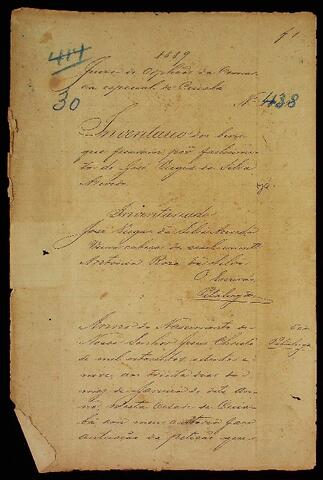 f 1
1889
414
30
Juizo de Orphãos da Comar
ca especial de Cuiabá
Nº 438
Inventario dos bens
que ficaram por fallecimen
to de José Viegas da Silva
Inventariado
José Viegas da Silva
Antonia Rosa da Silva
O Escrivão
Anno do Nascimento de
Nosso Senhor Jesus Christo
de mil oitocentos oitenta e
nove, aos trinta dias do
mez de Janeiro do dito an
no, nesta Cidade de Cuia
bá em meu cartorio faço
autuação da petição que